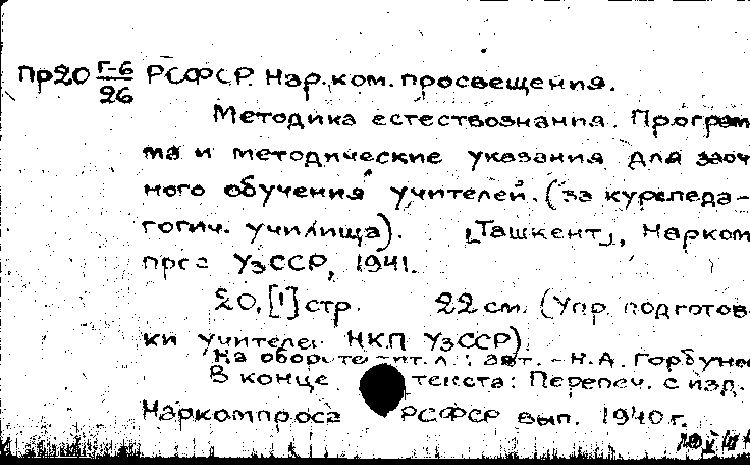 Пр20 Г-6 РСФСР. Нар.ком. просвещения.
26
Методика естествознания. Програм
ма и методические указания для заоч
ного обучения учителей. (за курс педа-
гогич. училища). [Ташкент], Нарком
прос УзССР, 1941.
20, [1] стр. 22 см. (Упр. подготов
ки учителей НКП УзССР)
На обороте тит. л.: авт. - Н.А. Горбуно
В конце текста: Перепеч. с изд.
Наркомпроса РСФСР вып. 1940 г.